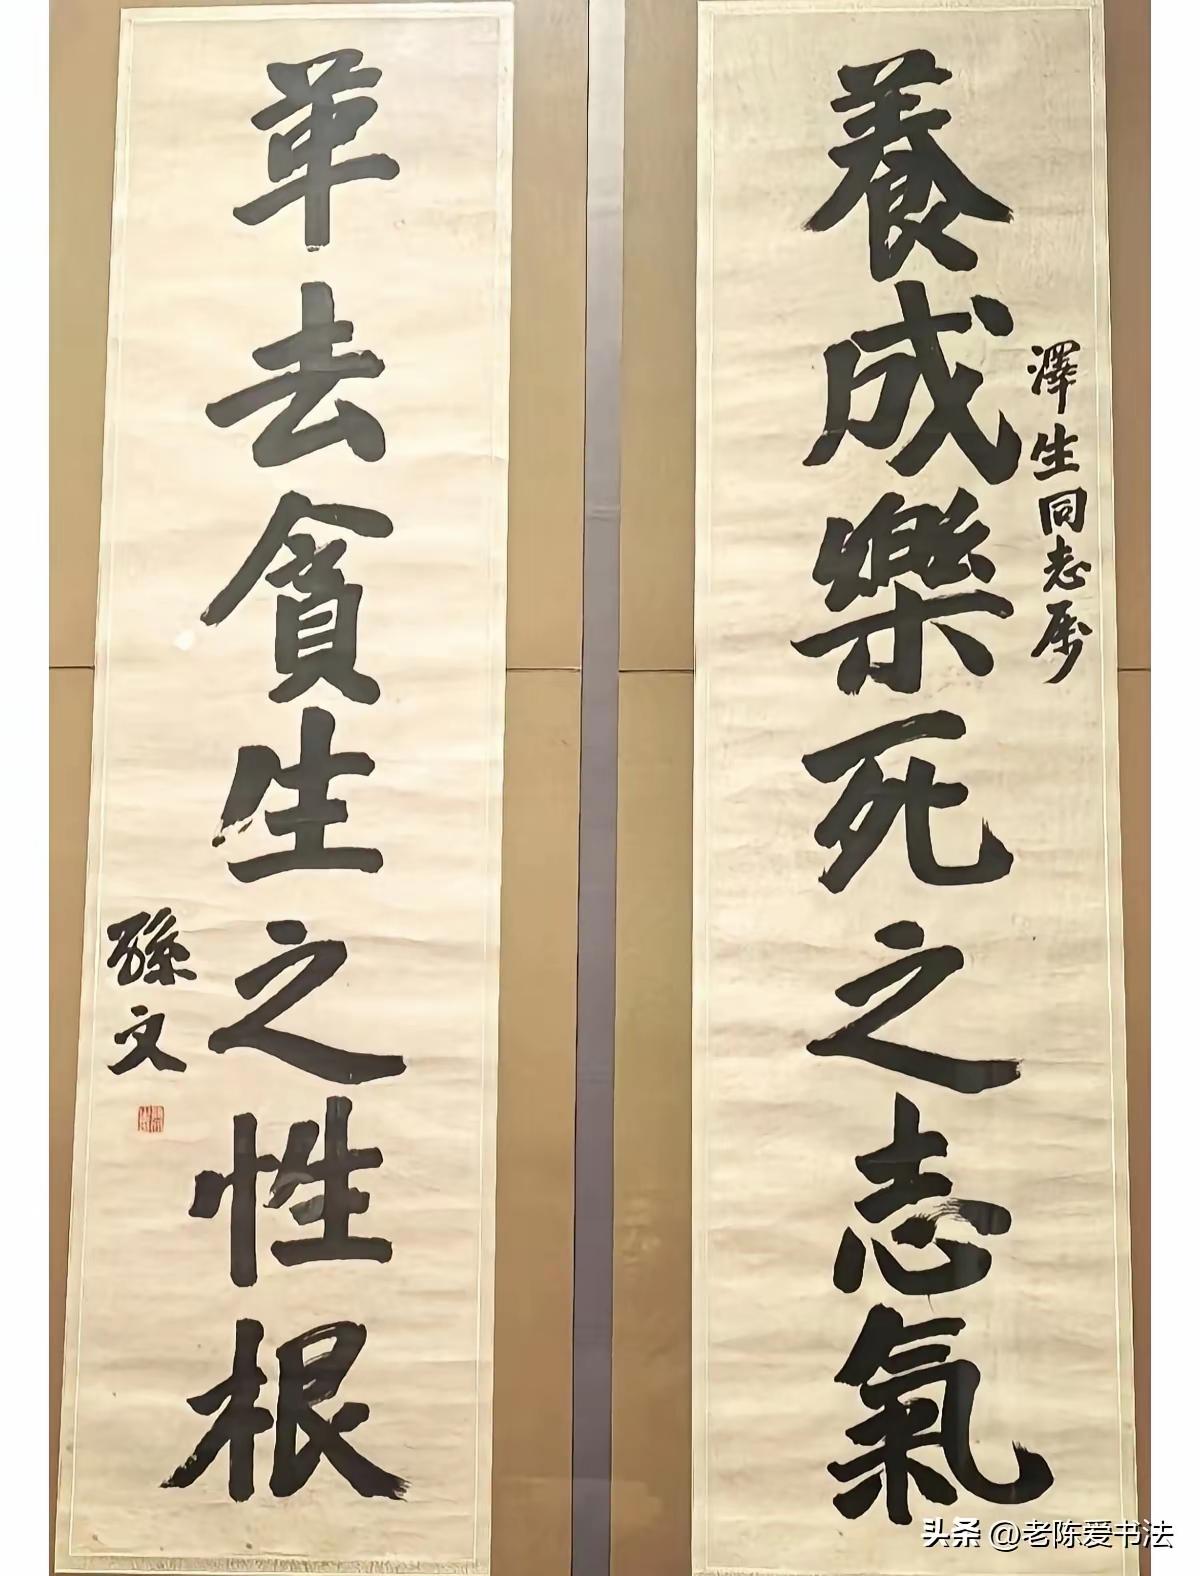 養成樂死之志氣
澤生同志属
革去貪生之性根
孫文
头条 @老陈爱书法